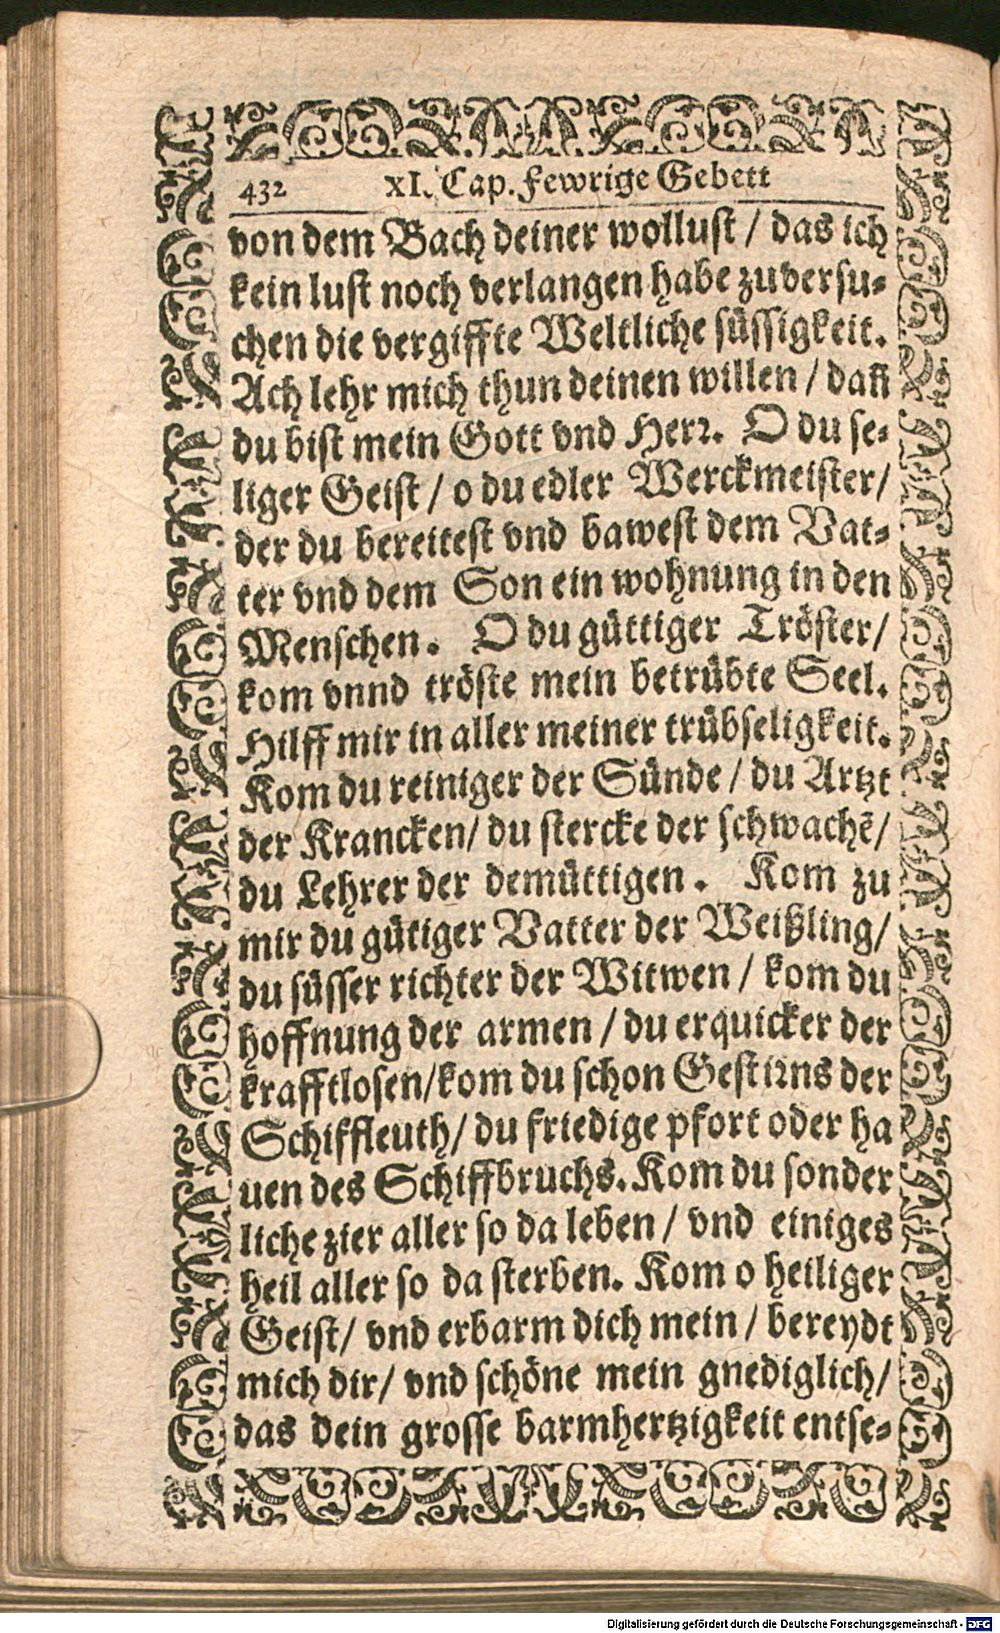 432 XI. Cap. Fewrige Gebett
von dem Bach deiner wollust / das ich
kein lust noch verlangen habe zuversu-
chen die vergiffte Weltliche süssigkeit.
Ach lehr mich thun deinen willen / dañ
du bist mein Gott vnd Herr. O du se-
liger Geist / o du edler Werckmeister /
der du bereitest vnd bawest dem Vat-
ter vnd dem Son ein wohnung in den
Menschen. O du güttiger Tröster /
kom vnnd tröste mein betrübte Seel.
Hilff mir in aller meiner trübseligkeit.
Kom du reiniger der Sünde / du Artzt
der Krancken / du stercke der schwachẽ /
du Lehrer der demüttigen. Kom zu
mir du gütiger Vatter der Weißling /
du süsser richter der Witwen / kom du
hoffnung der armen / du erquicker der
krafftlosen / kom du schon Gestirns der
Schiffleuth / du friedige pfort oder ha
uen des Schiffbruchs. Kom du sonder
liche zier aller so da leben / vnd einiges
heil aller so da sterben. Kom o heiliger
Geist / vnd erbarm dich mein / bereydt
mich dir / vnd schöne mein gnediglich /
das dein grosse barmhertzigkeit entse-
Digitalisierung gefördert durch die Deutsche Forschungsgemeinschaft - DFG